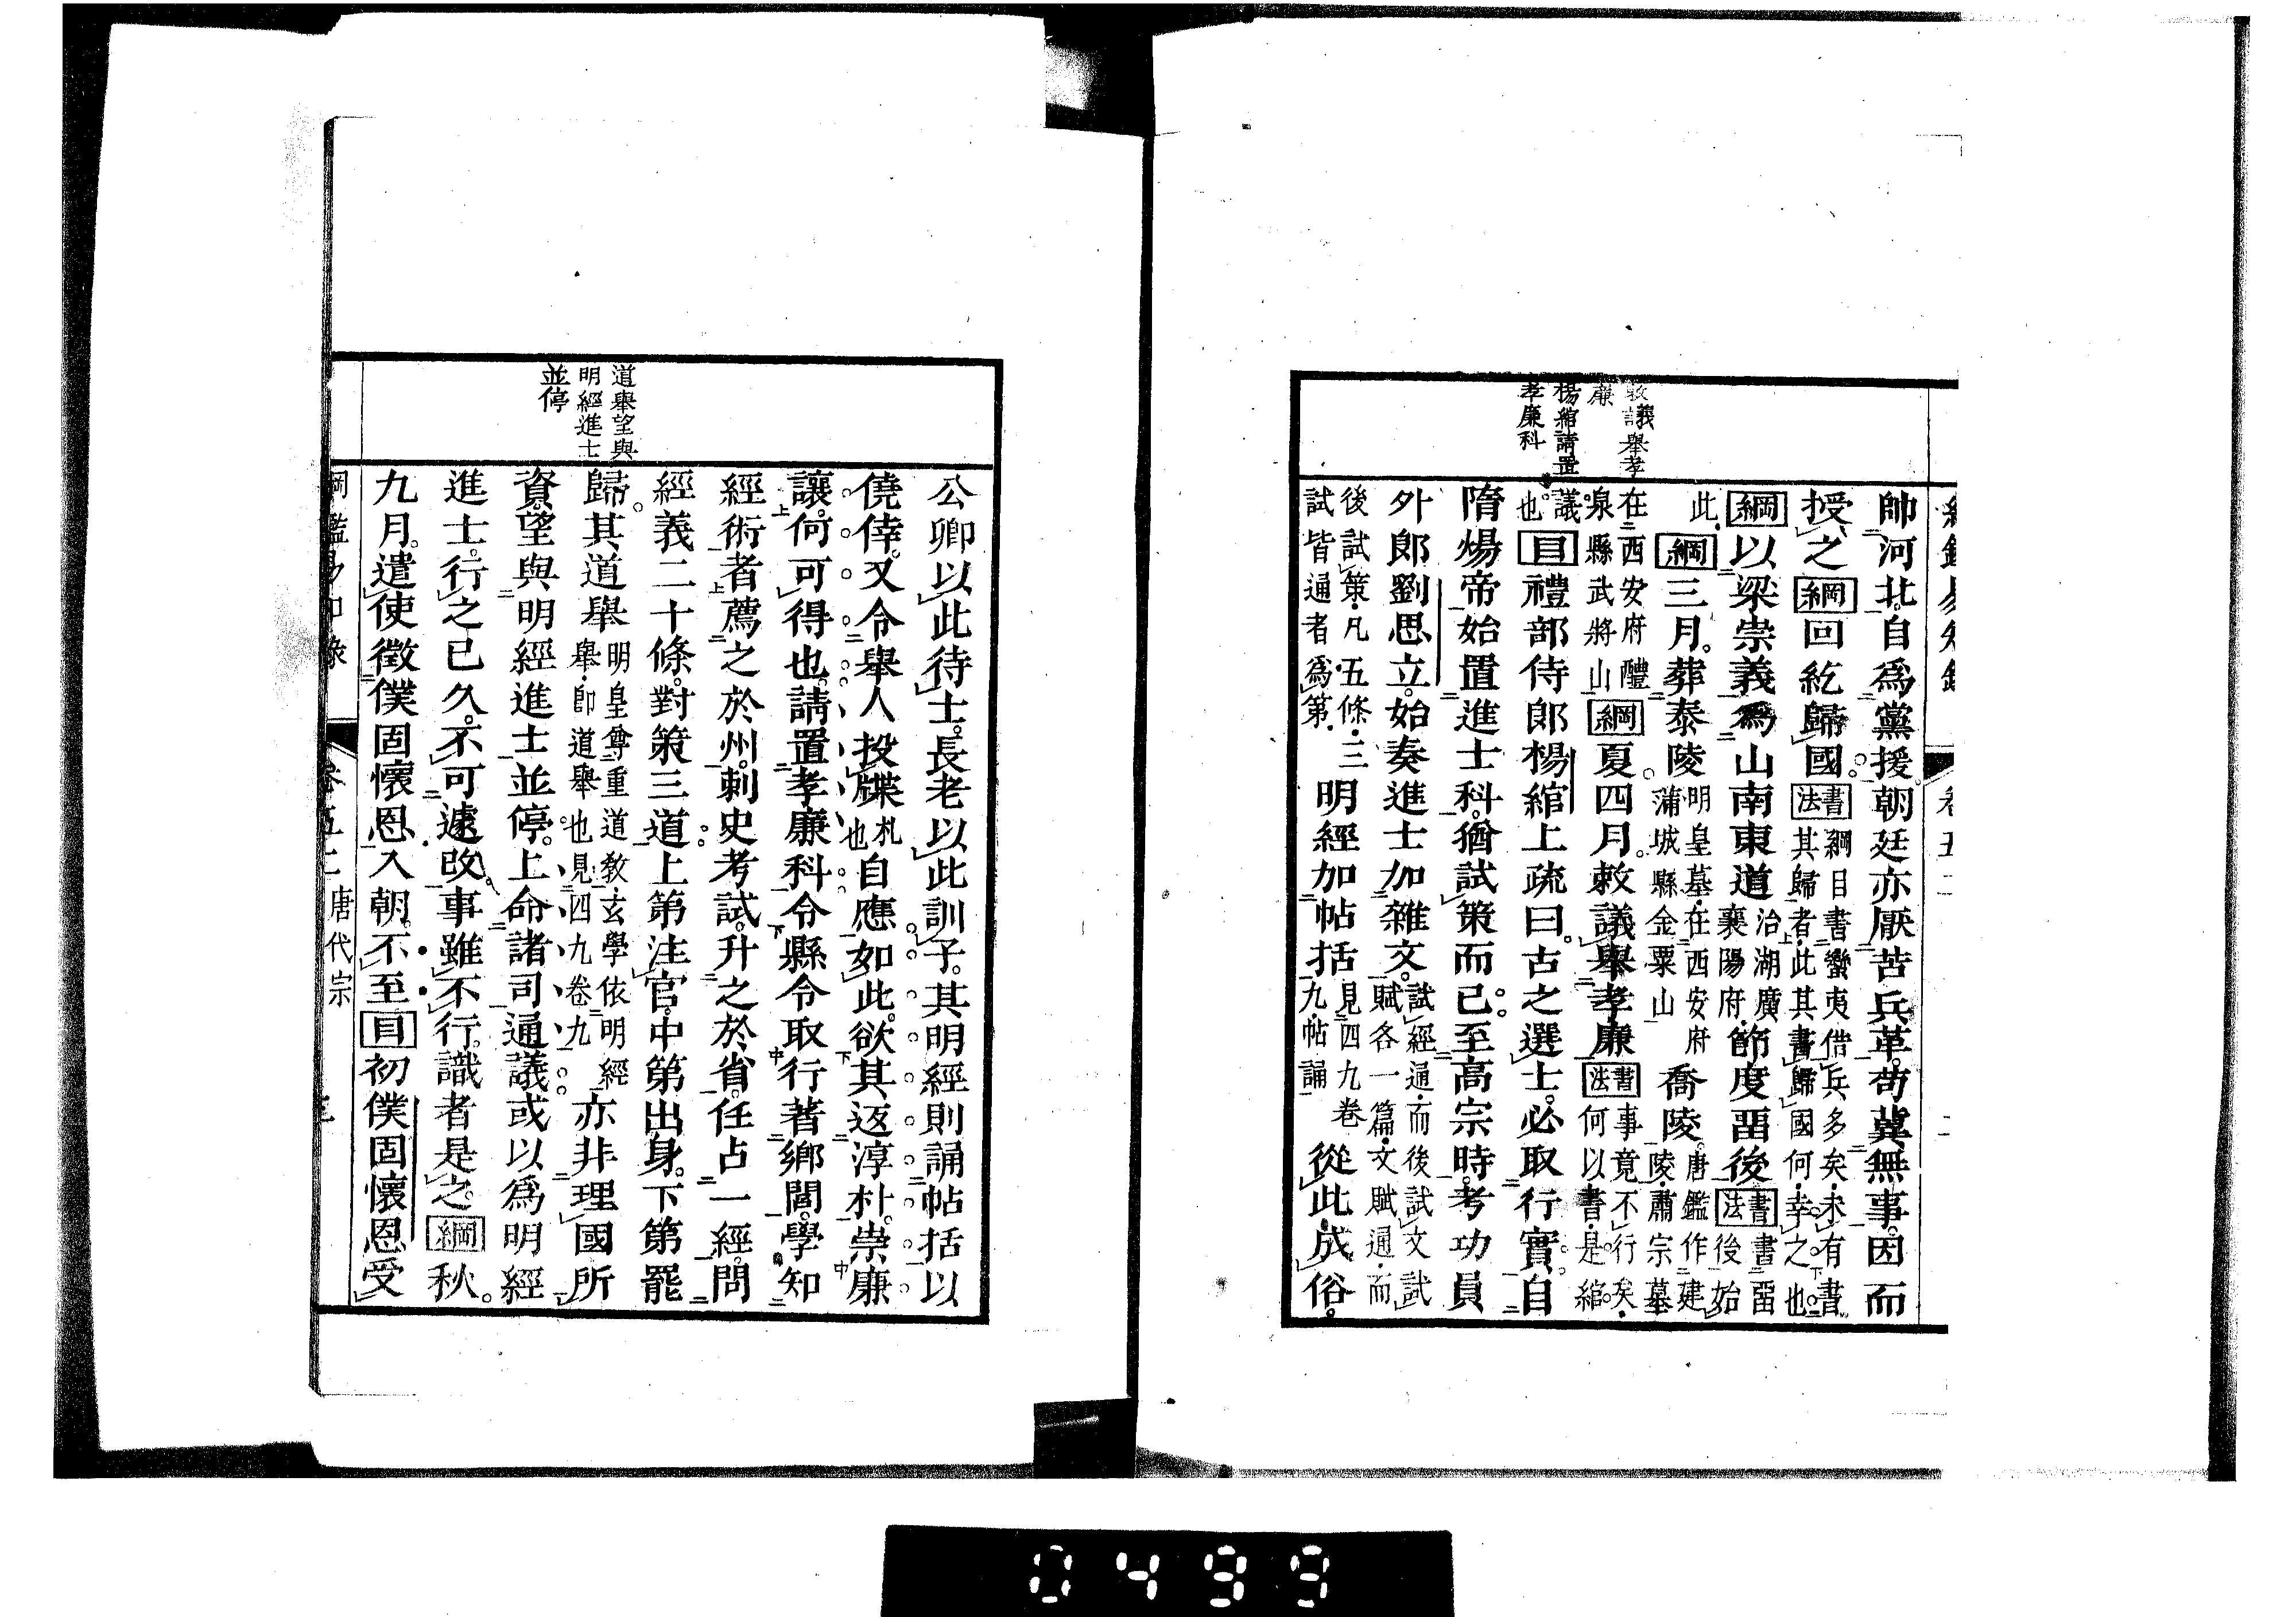 敕議舉孝
廉
楊綰請置
孝廉科
帥河北自爲黨援朝廷亦厭苦兵革苟冀無事因而
授之綱回紇歸國書法綱目書蠻夷借兵多矣未有書
其歸者此其書歸國何幸之也
綱以梁崇義爲山南東道治湖廣襄陽府節度畱後書法書畱
後始
此綱三月葬泰陵明皇墓在西安府蒲城縣金粟山喬陵唐鑑作建陵肅宗墓
在西安府醴泉縣武將山綱夏四月敕議舉孝廉書法事竟不行矣何以書是綰
議也目禮部侍郎楊綰上疏曰古之選士必取行實自
隋煬帝始置進士科猶試策而已至高宗時考功員
外郎劉思立始奏進士加雜文試經通而後試文試賦各一篇文賦通而
後試策凡五條三試皆通者爲第明經加帖括見四九卷九帖誦從此成俗
公卿以此待士長老以此訓子其明經則誦帖括以
僥倖又令舉人投牒札也自應如此欲其返淳朴崇廉
讓何可得也請置孝廉科令縣令取行著鄉閭學知
經術者薦之於州刺史考試升之於省任占一經問
經義二十條對策三道上第注官中第出身下第罷
歸其道舉明皇尊重道教玄學依明經舉即道舉也見四九卷九亦非理國所
資望與明經進士並停上命諸司通議或以爲明經
進士行之已久不可遽改事雖不行識者是之綱秋
九月遣使徵僕固懷恩入朝不至目初僕固懷恩受
道舉望與
明經進士
並停
唐代宗
0499